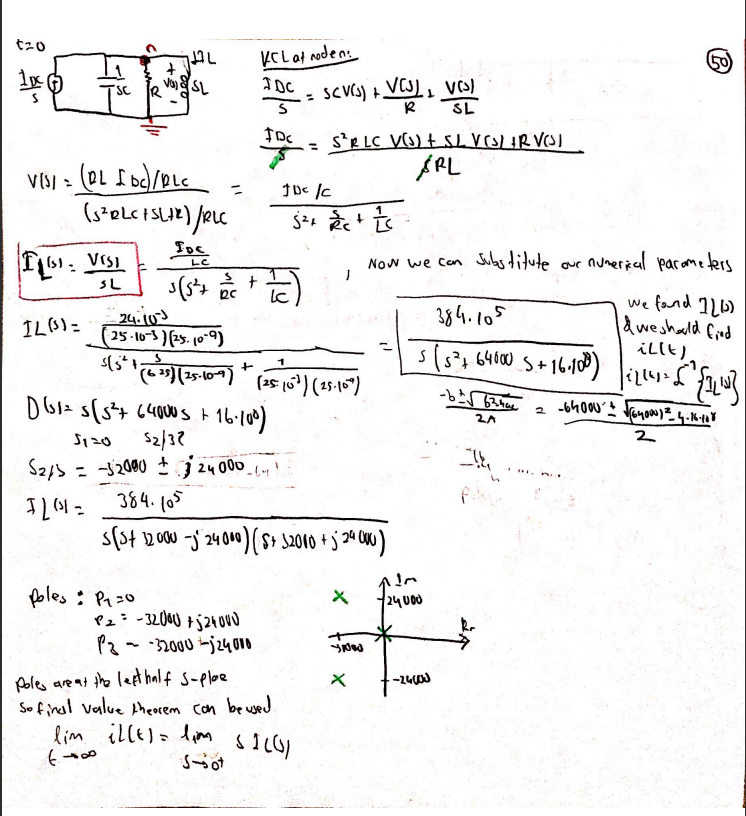 t=0
IDC/S
1/SC
R
+ V(s) -
IL
SL
n
KCL at node n:
50
IDC/S = SCV(s) + V(s)/R + V(s)/SL
IDC/S = S²RLC V(s) + SL V(s) + R V(s) / SRL
V(s) = (RL IDC)/RLC / (S²RLC+SL+R)/RLC = IDC/C / S² + S/RC + 1/LC
IL(s) = V(s)/SL = IDC/LC / S(S² + S/RC + 1/LC) , Now we can substitute our numerical parameters
IL(s) = 24.10⁻³/(25.10⁻³)(25.10⁻⁹) / S(S² + S/(625)(25.10⁻⁹) + 1/(25.10⁻³)(25.10⁻⁹)) = 384.10⁵ / S(S² + 64000 S + 16.10⁸)
we found IL(s)
& we should find
iL(t)
iL(t) = L⁻¹{IL(s)}
D(s) = S(S² + 64000 S + 16.10⁸)
S1=0 S2/3?
-64000 ± √(64000)² - 4.16.10⁸ / 2
S2/3 = -32000 ± j 24000
IL(s) = 384.10⁵ / S(S+32000 - j24000)(S+32000 + j24000)
Poles : P1=0
P2 = -32000 + j24000
P3 = -32000 - j24000
Im
24000
Re
-24000
Poles are at the left half S-plane
So final value theorem can be used
lim t→∞ iL(t) = lim S→0+ S IL(s)